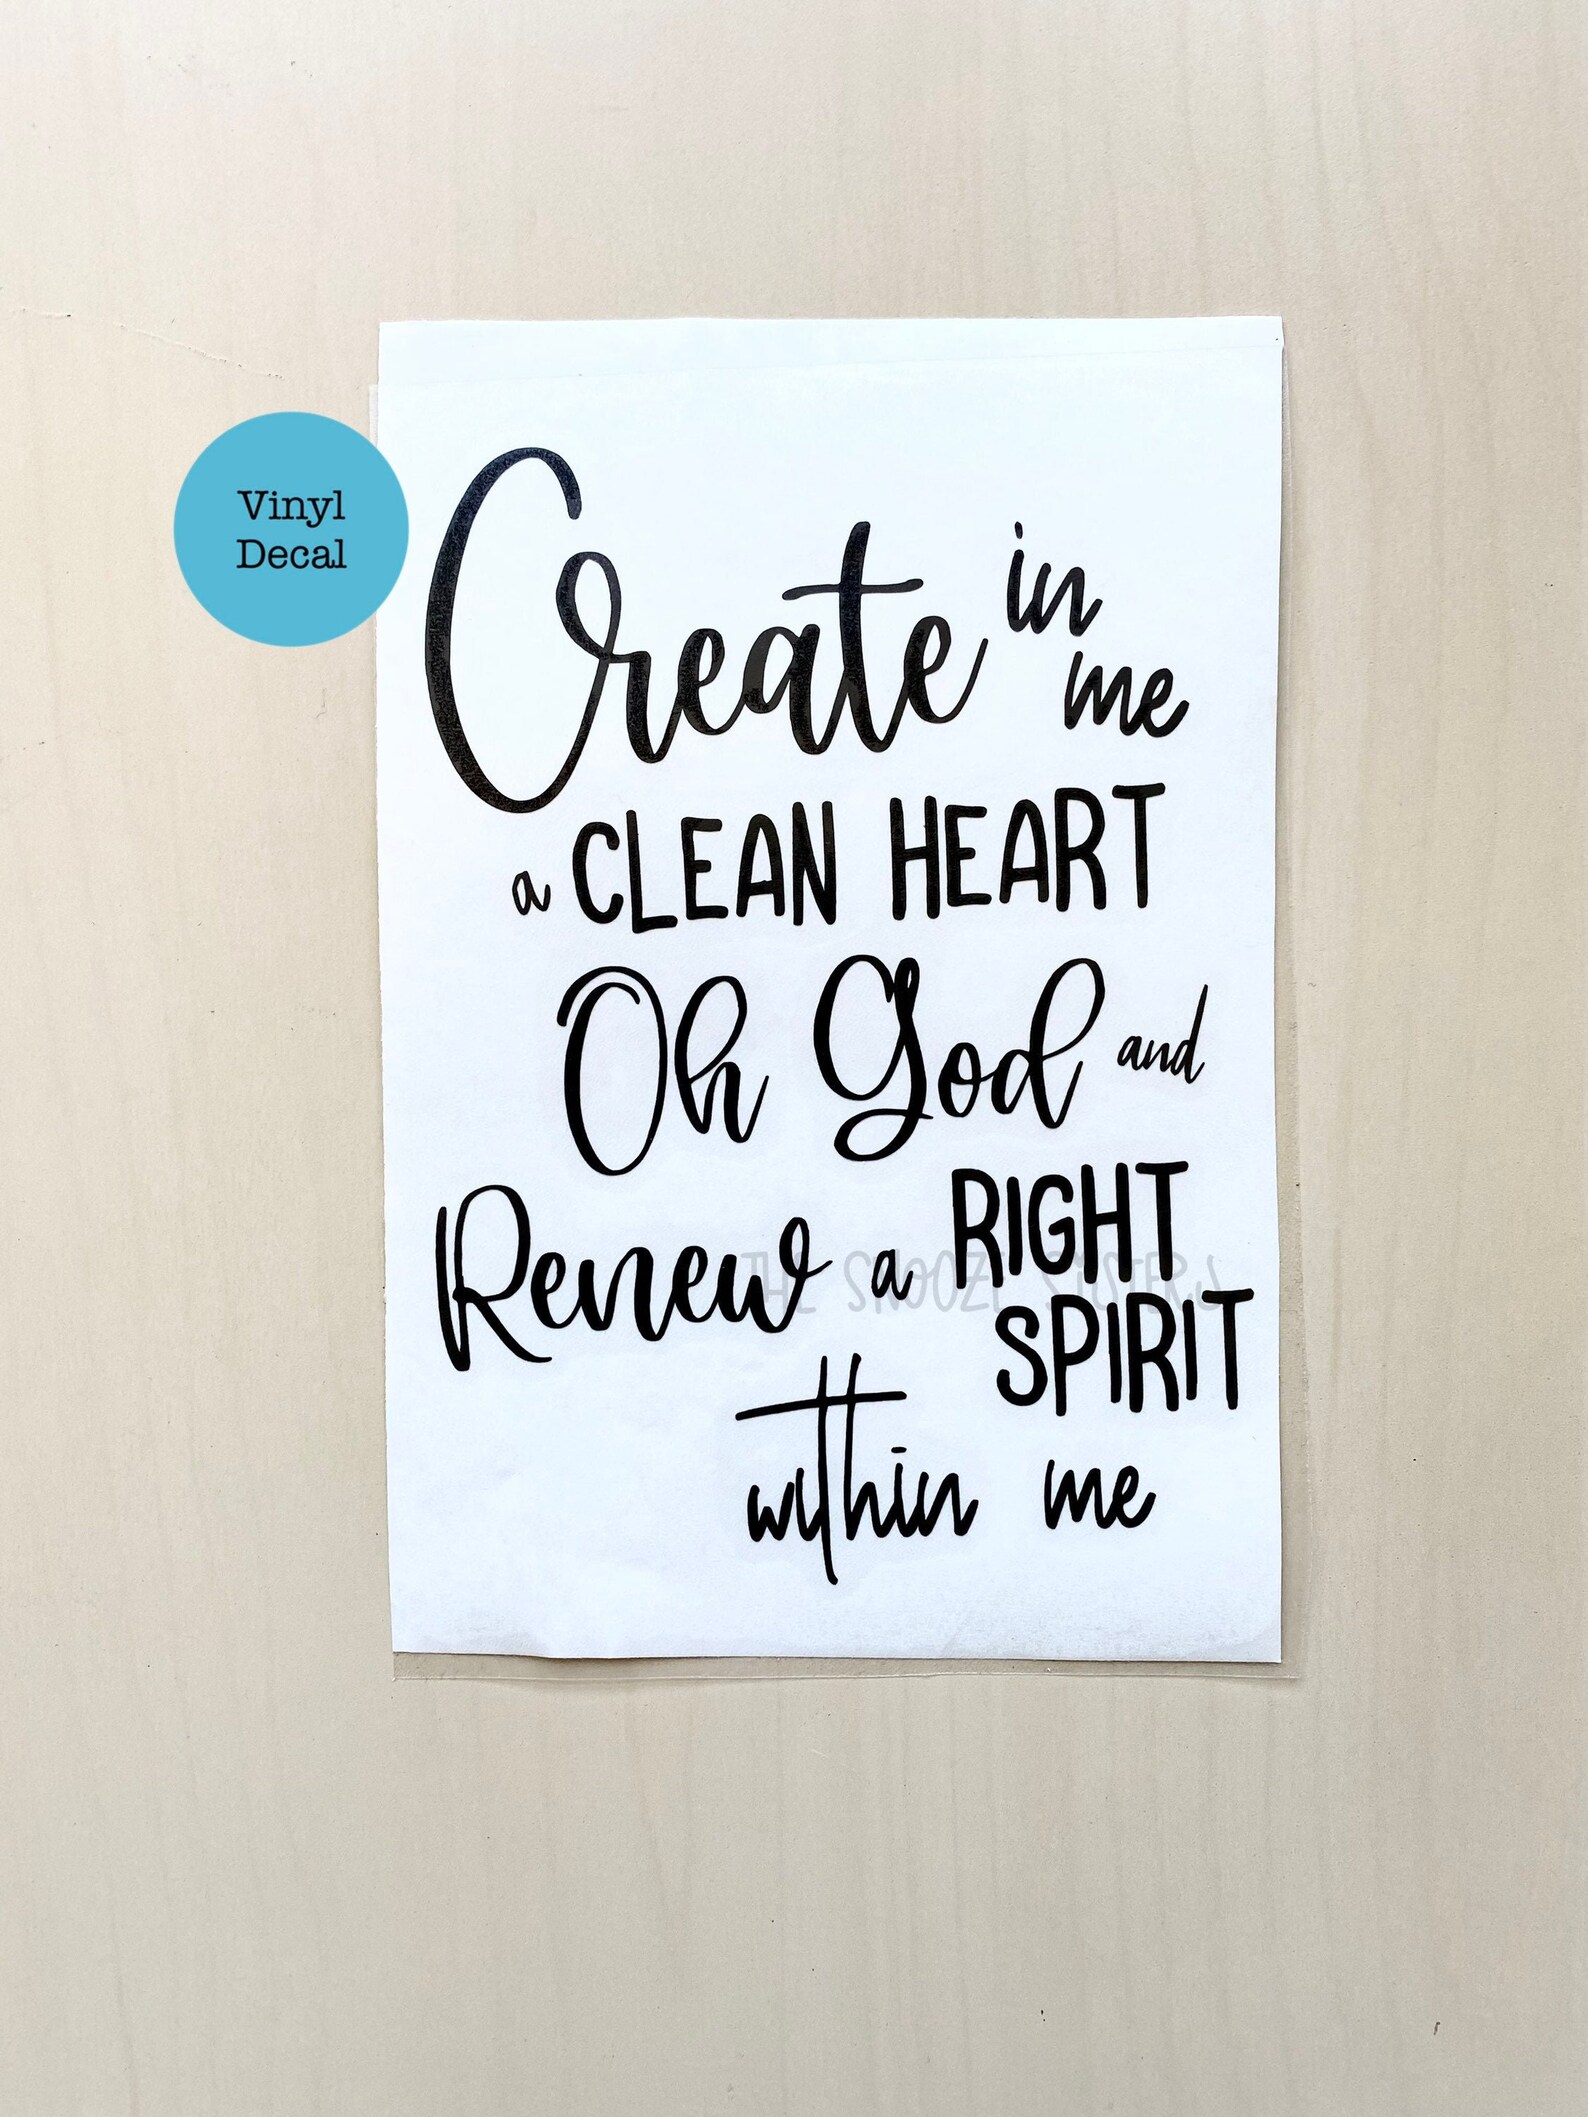 Vinyl
Decal
Create in
me
a CLEAN HEART
Oh God and
Renew a RIGHT
THE SNOOZE SISTERS
SPIRIT
within me